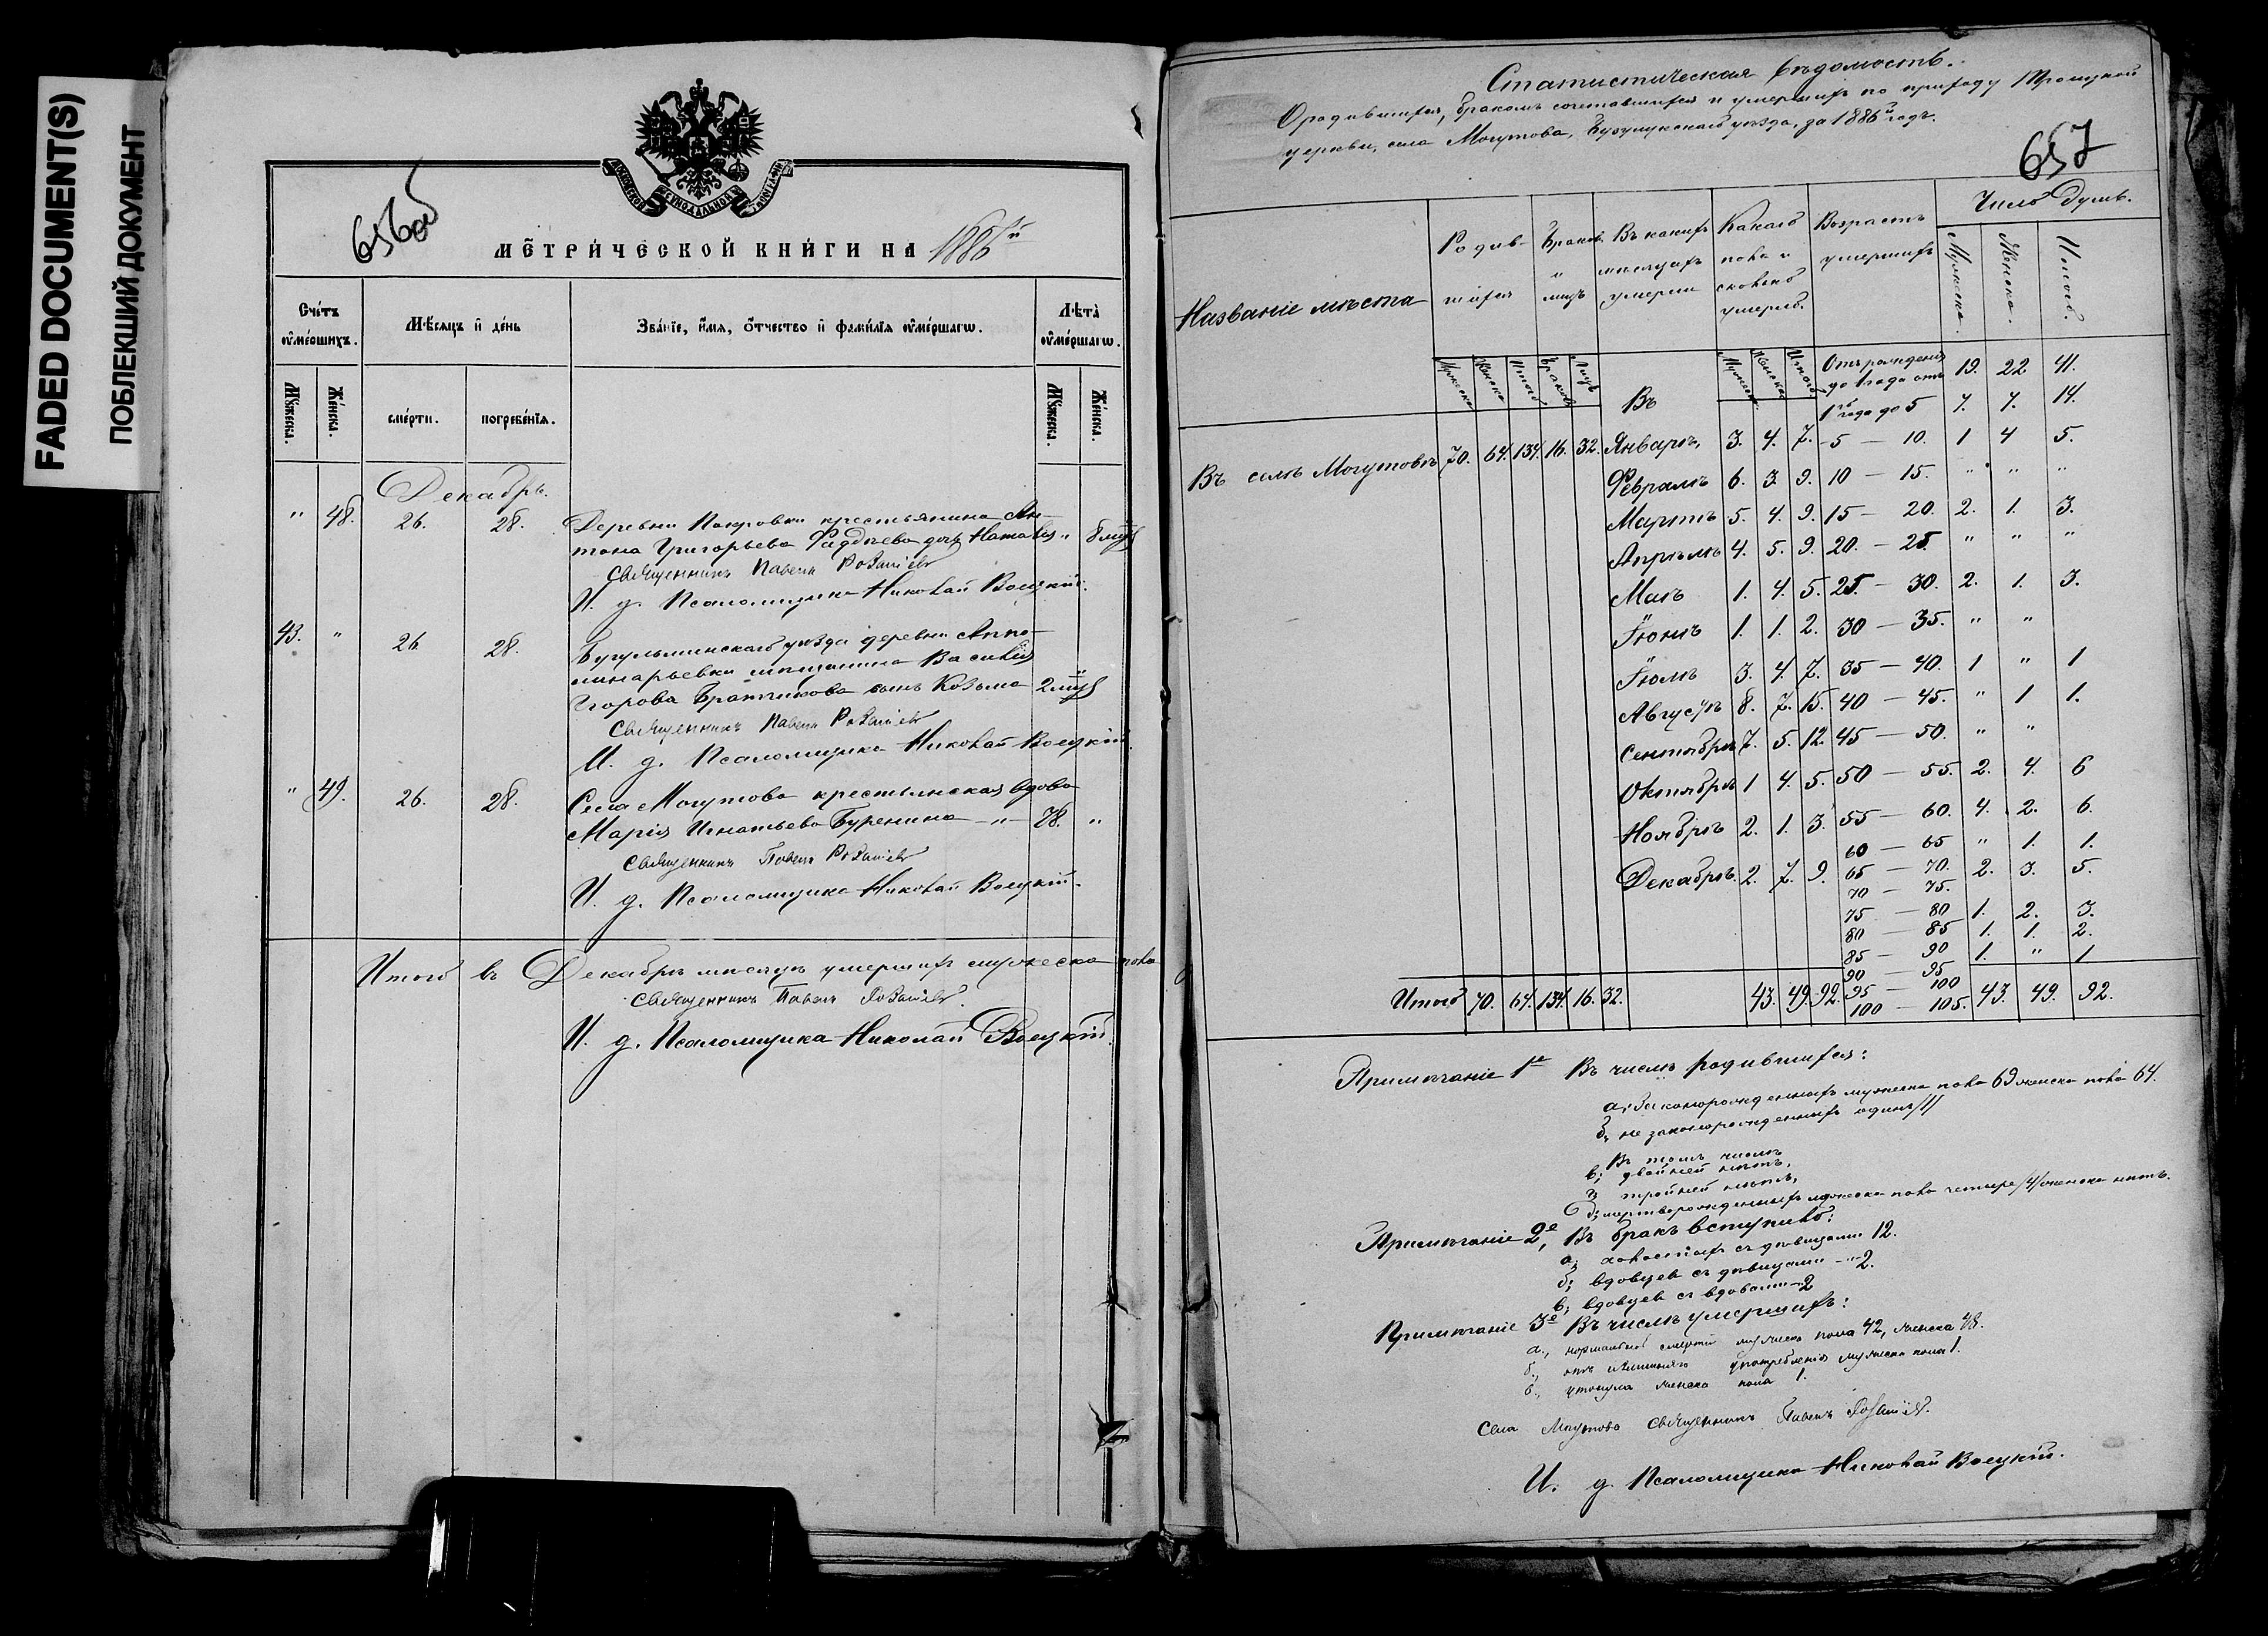 FADED DOCUMENT(S)
ПОБЛЕКШИЙ ДОКУМЕНТ
МОСКОВСКОЙ СѴНОДАЛЬНОЙ ТѴПОГРАФІИ
656об
МЕТРИ́ЧЕСКОЙ КНИ́ГИ НА 1886й
Сче́тъ ᲂу҆ме́ршихъ.
Мѣ́сяцъ и҆ де́нь
Зва́нїе, и҆́мя, ѻ҆́тчество и҆ фами́лїя ᲂу҆ме́ршагѡ.
Лѣта̀ ᲂу҆ме́ршагѡ.
Мꙋ́жеска.
Же́нска.
сме́рти.
погребе́нїя.
Мꙋ́жеска.
Же́нска.
Декабрь.
" 48. 26. 28. Деревни Покровки крестьянина Ан-
тона Григорьева Фадѣева дочь Наталія " 8 мцъ
Священникъ Павелъ
И. д. Псаломщика Николай Воецкій.
43. " 26. 28. Бугульминскаго уѣзда деревни Аппо-
линарьевки мѣщанина Василія
Егорова Братчикова сынъ Козьма 2 мцъ "
Священникъ Павелъ
И. д. Псаломщика Николай Воецкій.
" 49. 26. 28. Села Могутова крестьянская вдова
Марія Игнатьева Буренина - " - 78. "
Священникъ Павелъ
И. д. Псаломщика Николай Воецкій.
Итого въ Декабрѣ мѣсяцѣ умершихъ мужеска пола
Священникъ Павелъ
И. д. Псаломщика Николай Воецкій.
Статистическая вѣдомость.
О родившихся, бракомъ сочетавшихся и умершихъ по приходу Троицкой
церкви, села Могутова, Бузулукскаго уѣзда, за 1886й годъ.
657
Названіе мѣста
Родив-
шихся
Браковъ
и
лицъ
Въ какихъ
мѣсяцахъ
умерли
Какого
пола и
сколько
умерло.
Возрастъ
умершихъ
Число душъ.
Мужска.
Женска.
Итого.
Мужеска
Женска
Итого
Браковъ
Лицъ
Въ
Мужеска
Женска
Итого
Отъ рожденія
до 1 года отъ 19. 22 41.
1го года до 5 7. 7. 14.
Въ селѣ Могутовѣ 70. 64. 134. 16. 32. Январѣ, 3. 4. 7. -5 — 10. 1 4 5.
Февралѣ 6. 3. 9. 10 — 15. " " "
Мартѣ 5. 4. 9. 15 — 20. 2. 1. 3.
Апрѣлѣ 4. 5. 9. 20. — 25. " " "
Маѣ 1. 4. 5. 25. — 30. 2. 1. 3.
Іюнѣ 1. 1. 2. 30 — 35. " "
Іюлѣ 3. 4. 7. 35 — 40. 1 " 1
Августѣ 8. 7. 15. 40 — 45. " 1 1.
Сентябрѣ 7. 5. 12. 45 — 50. " "
Октябрѣ 1 4. 5. 50 — 55. 2. 4. 6
Ноябрѣ 2. 1. 3. 55 — 60. 4. 2. 6.
60 — 65 " 1. 1.
Декабрѣ. 2. 7. 9. 65 — 70. 2. 3. 5.
70 — 75.
75 — 80 1. 2. 3.
80 — 85 1. 1. 2.
85 — 90 1. " 1
90 — 95
Итого 70. 64. 134. 16. 32. 43. 49. 92. 95 — 100 43. 49. 92.
100 — 105.
Примѣчаніе 1е Въ числѣ родившихся:
а; законорожденныхъ мужеска пола 69 женска пола 64.
б; не законорожденныхъ одинъ /1/
Въ томъ числѣ
в; двойней нѣтъ,
г; тройней нѣтъ,
д; мертворожденныхъ мужеска пола четыре /4/ женска нѣтъ.
Примѣчаніе 2е, Въ бракъ вступило:
а; холостыхъ съ дѣвицами 12.
б; вдовцевъ съ дѣвицами - " - 2.
в; вдовцевъ съ вдовами - 2
Примѣчаніе 3е Въ числѣ умершихъ:
а., нормальной смертію мужеска пола 42, женска 48.
б., отъ излишняго употребленія мужеска пола 1.
в., утонула женска пола 1.
Села Могутова Священникъ Павелъ
И. д. Псаломщика Николай Воецкій.